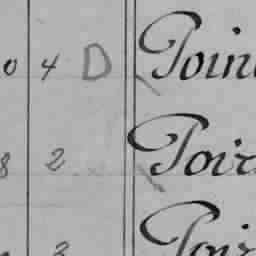 0 4 D Poin
8 2 Poir
3 Poir